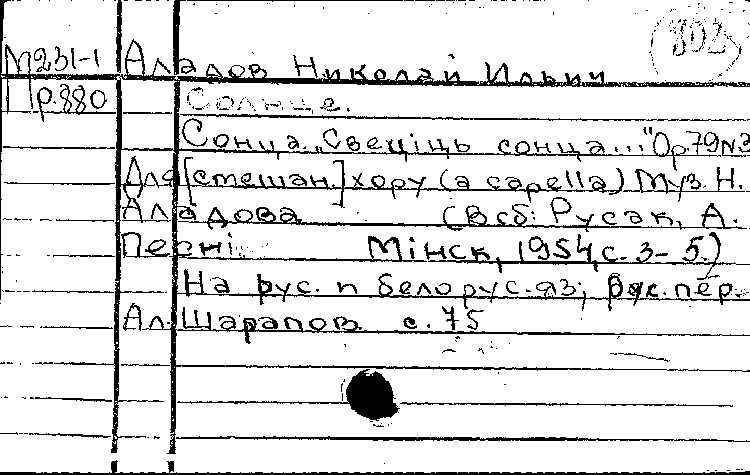 802
М231-1 Аладов Николай Ильич
Пр.880 Солнце.
Сонца. „Свеціць сонца..." Op 79 N3
Для [смешан.] хору (a capella) Муз. Н.
Аладова (В сб: Русак, А.
Песні Мінск, 1954, с. 3-5.)
На рус. п белорус. яз; рус. пер.
Ал. Шарапов. с. 75